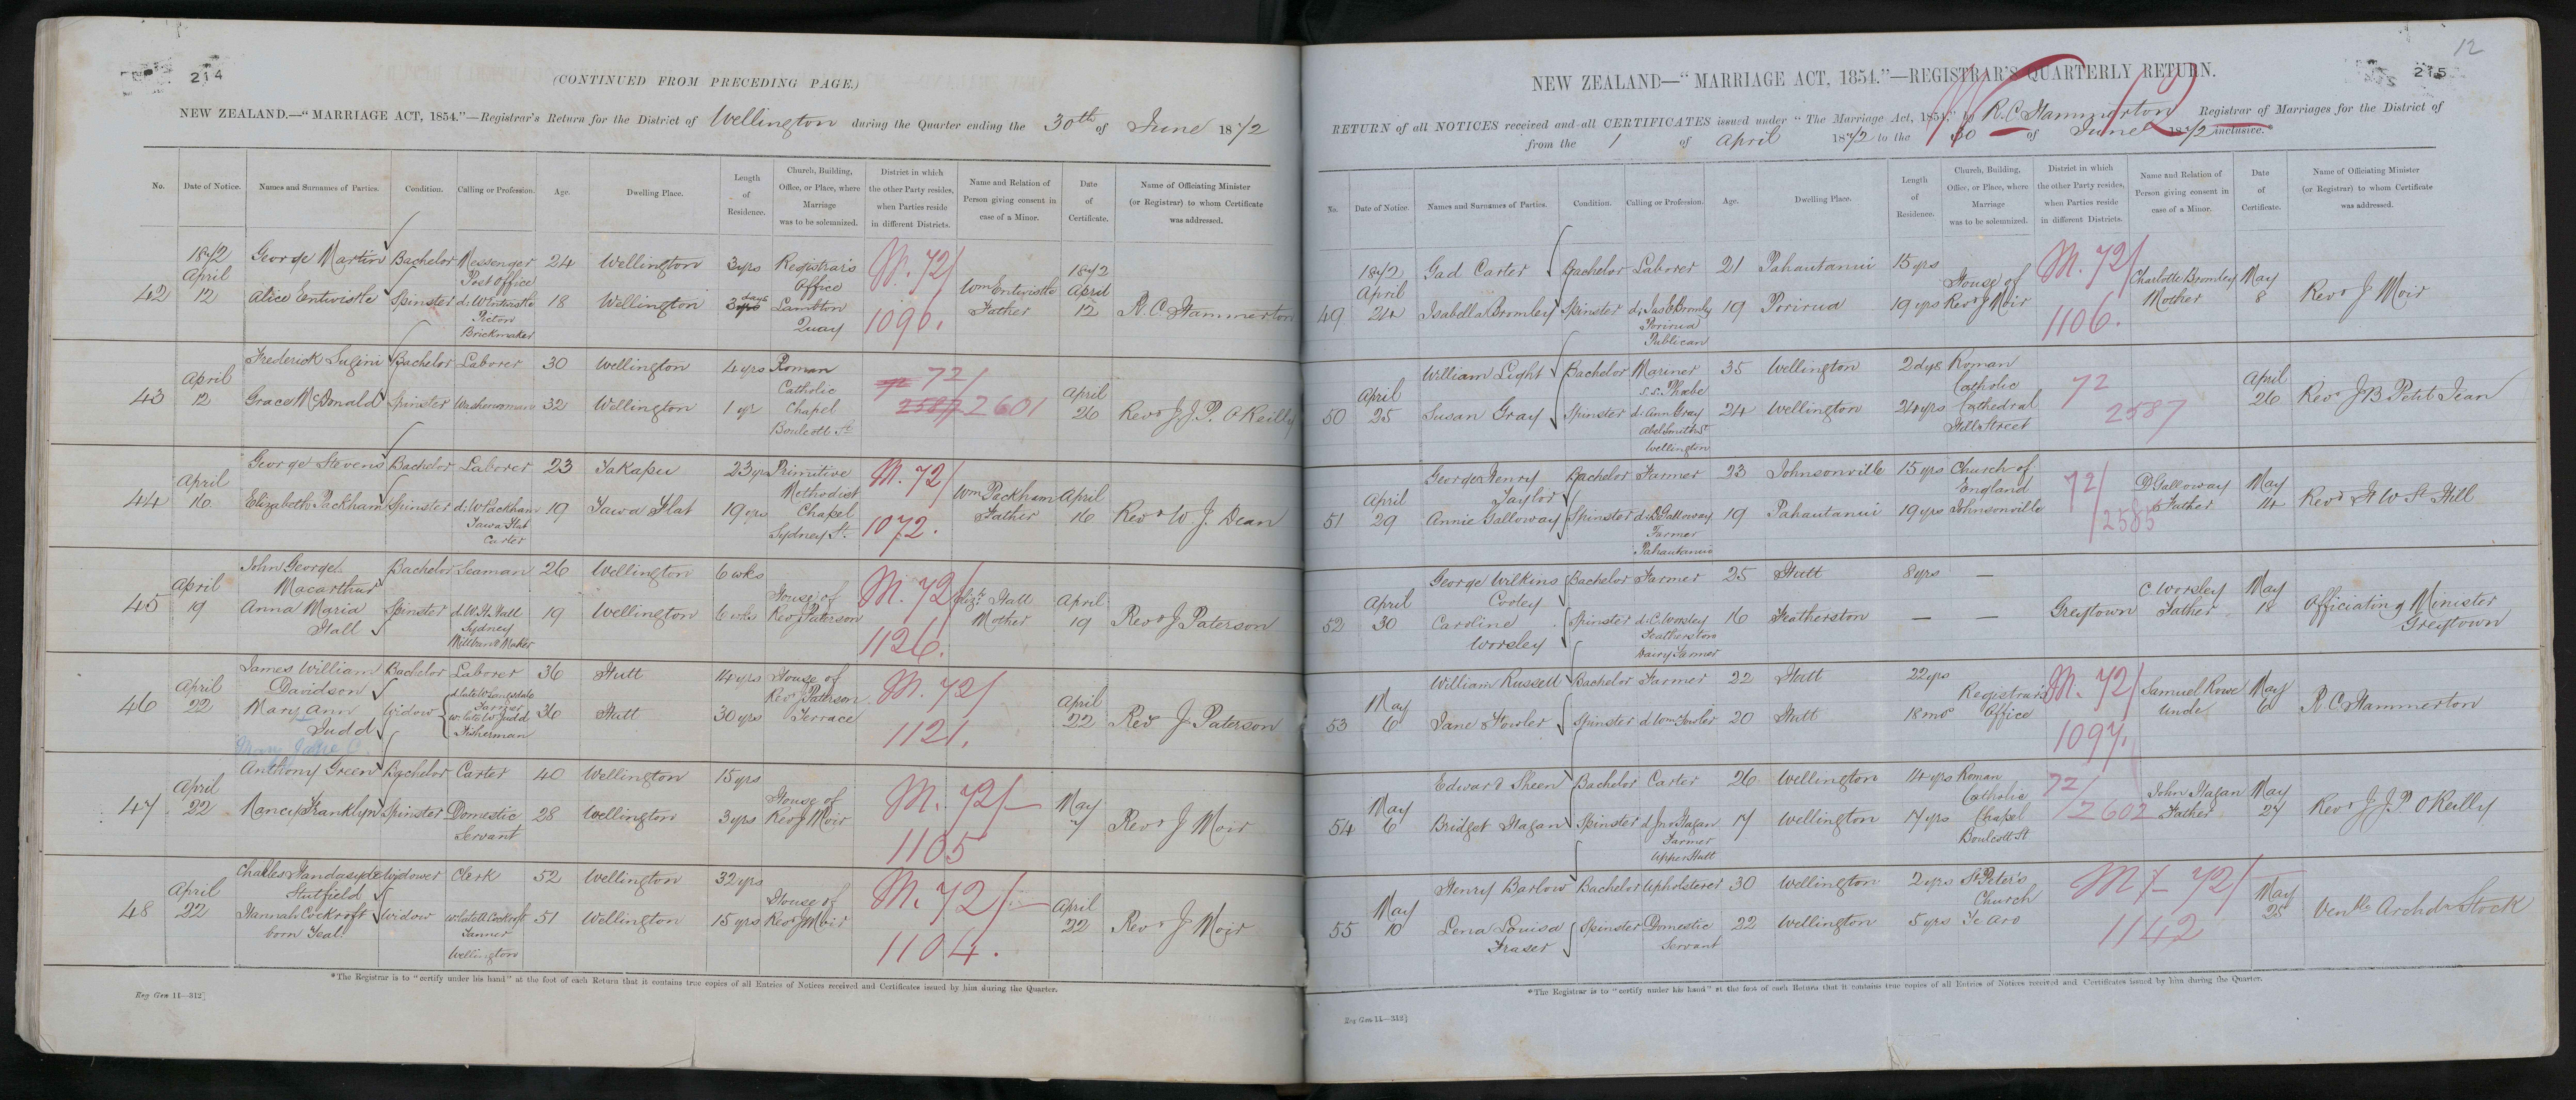 214
(CONTINUED FROM PRECEDING PAGE.)
NEW ZEALAND.—"MARRIAGE ACT, 1854."—Registrar's Return for the District of Wellington during the Quarter ending the 30th of June 1872
No. Date of Notice. Names and Surnames of Parties. Condition. Calling or Profession. Age. Dwelling Place. Length of Residence. Church, Building, Office, or Place, where Marriage was to be solemnized. District in which the other Party resides, when Parties reside in different Districts. Name and Relation of Person giving consent in case of a Minor. Date of Certificate. Name of Officiating Minister (or Registrar) to whom Certificate was addressed.
42 1872 April 12 George Martin Bachelor Messenger Post Office 24 Wellington 3 yrs Registrar's Office Lambton Quay M. 72/ 1090. Wm Entwistle Father 1872 April 12 R. C. Hammerton
Alice Entwistle Spinster d: W Entwistle Picton Brickmaker 18 Wellington 3 days
43 April 12 Frederick Sugini Bachelor Laborer 30 Wellington 4 yrs Roman Catholic Chapel Boulcott St 72/ 2601 April 26 Revd J. J. P. O'Reilly
Grace McDonald Spinster Washerwoman 32 Wellington 1 yr
44 April 16 George Stevens Bachelor Laborer 23 Takapu 23 yrs Primitive Methodist Chapel Sydney St. M. 72/ 1072. Wm Packham Father April 16 Revd W. J. Dean
Elizabeth Packham Spinster d: W Packham Tawa Flat Carter 19 Tawa Flat 19 yrs
45 April 19 John George Macarthur Bachelor Seaman 26 Wellington 6 wks House of Revd J Paterson M. 72/ 1126. Elizth Hall Mother April 19 Revd J Paterson
Anna Maria Hall Spinster d: W. H. Hall Sydney 19 Wellington 6 wks
46 April 22 James William Davidson Bachelor Laborer 36 Hutt 14 yrs House of Revd J Paterson Terrace M. 72/ 1121. April 22 Revd J Paterson
Mary Ann Judd Widow d: late W Langdale Farmer w: late W Judd Fisherman 36 Hutt 30 yrs
47 April 22 Anthony Green Bachelor Carter 40 Wellington 15 yrs House of Revd J Moir M. 72/ 1105 May 7 Revd J Moir
Nancy Franklyn Spinster Domestic Servant 28 Wellington 3 yrs
48 April 22 Charles Handasyde Stutfield Widower Clerk 52 Wellington 32 yrs House of Revd J Moir M. 72/ 1104. April 22 Revd J Moir
Hannah Cockroft born Widow w: late A Cockroft Wellington 51 Wellington 15 yrs
*The Registrar is to "certify under his hand" at the foot of each Return that it contains true copies of all Entries of Notices received and Certificates issued by him during the Quarter.
Reg Gen 11—312]
12
215
NEW ZEALAND—"MARRIAGE ACT, 1854."—REGISTRAR'S QUARTERLY RETURN.
RETURN of all NOTICES received and all CERTIFICATES issued under "The Marriage Act, 1854," by R. C. Hammerton Registrar of Marriages for the District of
from the 1 of April 1872 to the 30 of June 1872 inclusive.*
No. Date of Notice. Names and Surnames of Parties. Condition. Calling or Profession. Age. Dwelling Place. Length of Residence. Church, Building, Office, or Place, where Marriage was to be solemnized. District in which the other Party resides, when Parties reside in different Districts. Name and Relation of Person giving consent in case of a Minor. Date of Certificate. Name of Officiating Minister (or Registrar) to whom Certificate was addressed.
49 1872 April 24 Gad Carter Bachelor Laborer 21 Pahautanui 15 yrs House of Revd J Moir M. 72/ 1106. Charlotte Bromley Mother May 8 Revd J Moir
Isabella Bromley Spinster d: Jas Bromley Porirua Publican 19 Porirua 19 yrs
50 April 25 William Light Bachelor Mariner s.s. Phoebe 35 Wellington 2 dys Roman Catholic Cathedral Hill Street 72 2587 April 26 Revd J B Petit Jean
Susan Gray Spinster d: Ann Gray Abel Smith St Wellington 24 Wellington 24 yrs
51 April 29 George Henry Taylor Bachelor Farmer 23 Johnsonville 15 yrs Church of England Johnsonville 72/ 2585 D Galloway Father May 14 Revd H W St Hill
Annie Galloway Spinster d: D Galloway Farmer Pahautanui 19 Pahautanui 19 yrs
52 April 30 George Wilkins Corley Bachelor Farmer 25 Hutt 8 yrs — Greytown C. Worsley Father May 18 Officiating Minister Greytown
Caroline Worsley Spinster d: C. Worsley Featherston Dairy Farmer 16 Featherston — —
53 May 6 William Russell Bachelor Farmer 22 Hutt 22 yrs Registrar's Office M. 72/ 1097. Samuel Rowe Uncle May 6 R C Hammerton
Jane Fowler Spinster d Wm Fowler 20 Hutt 18 mos
54 May 6 Edward Sheen Bachelor Carter 26 Wellington 14 yrs Roman Catholic Chapel Boulcott St 72/ 2602 John Hagan Father May 27 Revd J. J. P. O'Reilly
Bridget Hagan Spinster d Jno Hagan Farmer Upper Hutt 17 Wellington 17 yrs
55 May 10 Henry Barlow Bachelor Upholsterer 30 Wellington 2 yrs St Peter's Church Te Aro M/ 72/ 1142 May 25 Venble Archdn Stock
Lena Louisa Fraser Spinster Domestic Servant 22 Wellington 5 yrs
*The Registrar is to "certify under his hand" at the foot of each Return that it contains true copies of all Entries of Notices received and Certificates issued by him during the Quarter.
Reg Gen 11—312]